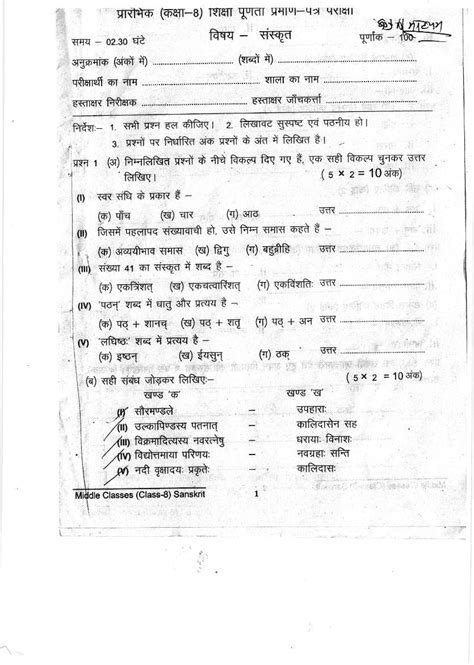 प्रारंभिक (कक्षा–8) शिक्षा पूर्णता प्रमाण–पत्र परीक्षा
विषय – संस्कृत
समय – 02.30 घंटे पूर्णांक – 100
अनुक्रमांक (अंकों में) (शब्दों में)
परीक्षार्थी का नाम शाला का नाम
हस्ताक्षर निरीक्षक हस्ताक्षर जाँचकर्त्ता
निर्देशः– 1. सभी प्रश्न हल कीजिए। 2. लिखावट सुस्पष्ट एवं पठनीय हो।
3. प्रश्नों पर निर्धारित अंक प्रश्नों के अंत में लिखित है।
प्रश्न 1 (अ) निम्नलिखित प्रश्नों के नीचे विकल्प दिए गए हैं, एक सही विकल्प चुनकर उत्तर
लिखिए। ( 5 × 2 = 10 अंक)
(I) स्वर संधि के प्रकार हैं –
(क) पाँच (ख) चार (ग) आठ उत्तर
(II) जिसमें पहलापद संख्यावाची हो, उसे निम्न समास कहते हैं –
(क) अव्ययीभाव समास (ख) द्विगु (ग) बहुब्रीहि उत्तर
(III) संख्या 41 का संस्कृत में शब्द है –
(क) एकत्रिंशत् (ख) एकचत्वारिंशत् (ग) एकविंशतिः उत्तर
(IV) 'पठन्' शब्द में धातु और प्रत्यय है –
(क) पठ् + शानच् (ख) पठ् + शतृ (ग) पठ् + अन उत्तर
(V) 'लघिष्ठः' शब्द में प्रत्यय है –
(क) इष्ठन् (ख) ईयसुन् (ग) ठक् उत्तर
(ब) सही संबंध जोड़कर लिखिएः– ( 5 × 2 = 10 अंक)
खण्ड 'क' खण्ड 'ख'
(I) सौरमण्डले – उपहाराः
(II) उल्कापिण्डस्य पतनात् – कालिदासेन सह
(III) विक्रमादित्यस्य नवरत्नेषु – धरायाः विनाशः
(IV) विद्योत्तमाया परिणयः – नवग्रहाः सन्ति
(V) नदी वृक्षादयः प्रकृतेः – कालिदासः
Middle Classes (Class-8) Sanskrit 1